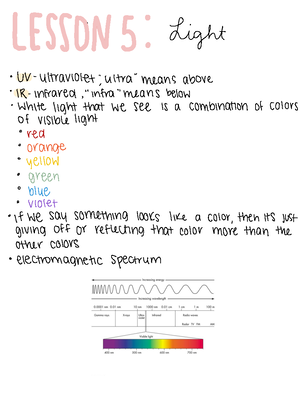 LESSON 5: Light
• UV - ultraviolet, "ultra" means above
• IR - infrared, "infra" means below
• White light that we see is a combination of colors
of visible light
• red
• orange
• yellow
• green
• blue
• violet
• If we say something looks like a color, then it's just
giving off or reflecting that color more than the
other colors
• electromagnetic spectrum
Increasing energy
Increasing wavelength
0.0001 nm 0.01 nm 10 nm 1000 nm 0.01 cm 1 cm 1 m 100 m
Gamma rays X-rays Infrared Radio waves
Visible light
400 nm 500 nm 600 nm 700 nm